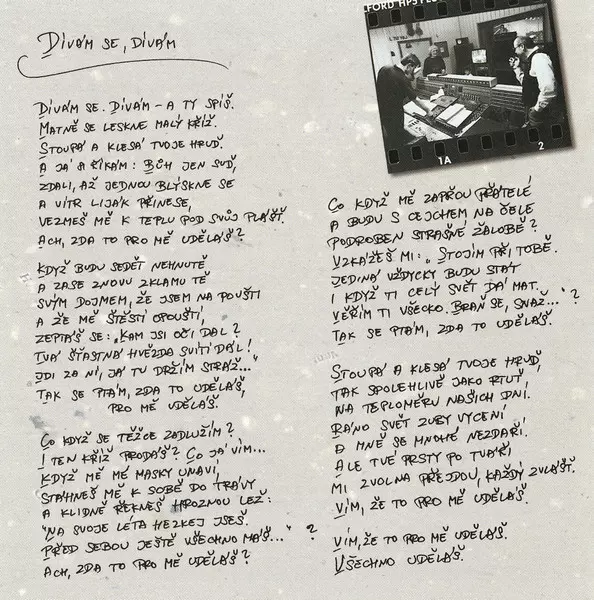 DÍVÁM SE, DÍVÁM
DÍVÁM SE. DÍVÁM – A TY SPÍŠ.
MATNĚ SE LESKNE MALÝ KŘÍŽ.
STOUPÁ A KLESÁ TVOJE HRUĎ.
A JÁ SI ŘÍKÁM: BŮH JEN SUĎ,
ZDALI, AŽ JEDNOU BLÝSKNE SE
A VÍTR LIJÁK PŘINESE,
VEZMEŠ MĚ K TEPLU POD SVŮJ PLÁŠŤ.
ACH, ZDA TO PRO MĚ UDĚLÁŠ?
KDYŽ BUDU SEDĚT NEHNUTĚ
A ZASE ZNOVU ZKLAMU TĚ
SVÝM DOJMEM, ŽE JSEM NA POUŠTI
A ŽE MĚ ŠTĚSTÍ OPOUŠTÍ,
ZEPTÁŠ SE: „KAM JSI OČI DAL?
TVÁ ŠŤASTNÁ HVĚZDA SVÍTÍ DÁL!
JDI ZA NÍ, JÁ TU DRŽÍM STRÁŽ..."
TAK SE PTÁM, ZDA TO UDĚLÁŠ,
PRO MĚ UDĚLÁŠ.
CO KDYŽ SE TĚŽCE ZADLUŽÍM?
I TEN KŘÍŽ PRODÁŠ? CO JÁ VÍM...
KDYŽ MĚ MÉ MASKY UNAVÍ,
STÁHNEŠ MĚ K SOBĚ DO TRÁVY
A KLIDNĚ ŘEKNEŠ HROZNOU LEŽ:
"NA SVOJE LÉTA HEZKEJ JSEŠ.
PŘED SEBOU JEŠTĚ VŠECHNO MÁŠ..." ?
ACH, ZDA TO PRO MĚ UDĚLÁŠ?
1A
2
CO KDYŽ MĚ ZAPŘOU PŘÁTELÉ
A BUDU S CEJCHEM NA ČELE
PODROBEN STRAŠNÉ ŽALOBĚ?
VZKÁŽEŠ MI: „STOJÍM PŘI TOBĚ.
JEDINÁ VŽDYCKY BUDU STÁT
I KDYŽ TI CELÝ SVĚT DÁ MAT.
VĚŘÍM TI VŠECKO. BRAŇ SE, SNAŽ..." ?
TAK SE PTÁM, ZDA TO UDĚLÁŠ.
STOUPÁ A KLESÁ TVOJE HRUĎ,
TAK SPOLEHLIVĚ JAKO RTUŤ,
NA TEPLOMĚRU NAŠICH DNÍ.
RÁNO SVĚT ZUBY VYCENÍ
A MNĚ SE MNOHÉ NEZDAŘÍ.
ALE TVÉ PRSTY PO TVÁŘI
MI ZVOLNA PŘEJDOU, KAŽDÝ ZVLÁŠŤ.
VÍM, ŽE TO PRO MĚ UDĚLÁŠ.
VÍM, ŽE TO PRO MĚ UDĚLÁŠ.
VŠECHNO UDĚLÁŠ.